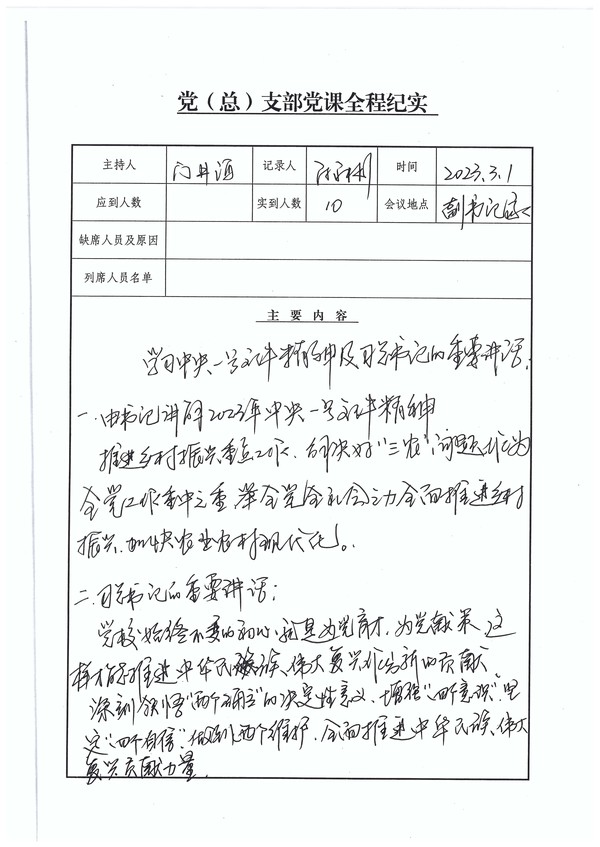 党（总）支部党课全程纪实
主持人 记录人 时间 2023.3.1
应到人数 实到人数 10 会议地点 副书记室
缺席人员及原因
列席人员名单
主要内容
学习中央一号文件精神及习总书记的重要讲话：
一、由书记讲解2023年中央一号文件精神
推进乡村振兴重点工作、解决好“三农”问题作为
全党工作重中之重，举全党全社会之力全面推进乡村
振兴，加快农业农村现代化。
二、习总书记的重要讲话：
学校始终不变的初心，就是为党育才，为党献策，这
样才能推进中华民族伟大复兴作出新的贡献
深刻领悟“两个确立”的决定性意义，增强“四个意识”，坚
定“四个自信”，做到“两个维护”，全面推进中华民族伟大
复兴贡献力量。